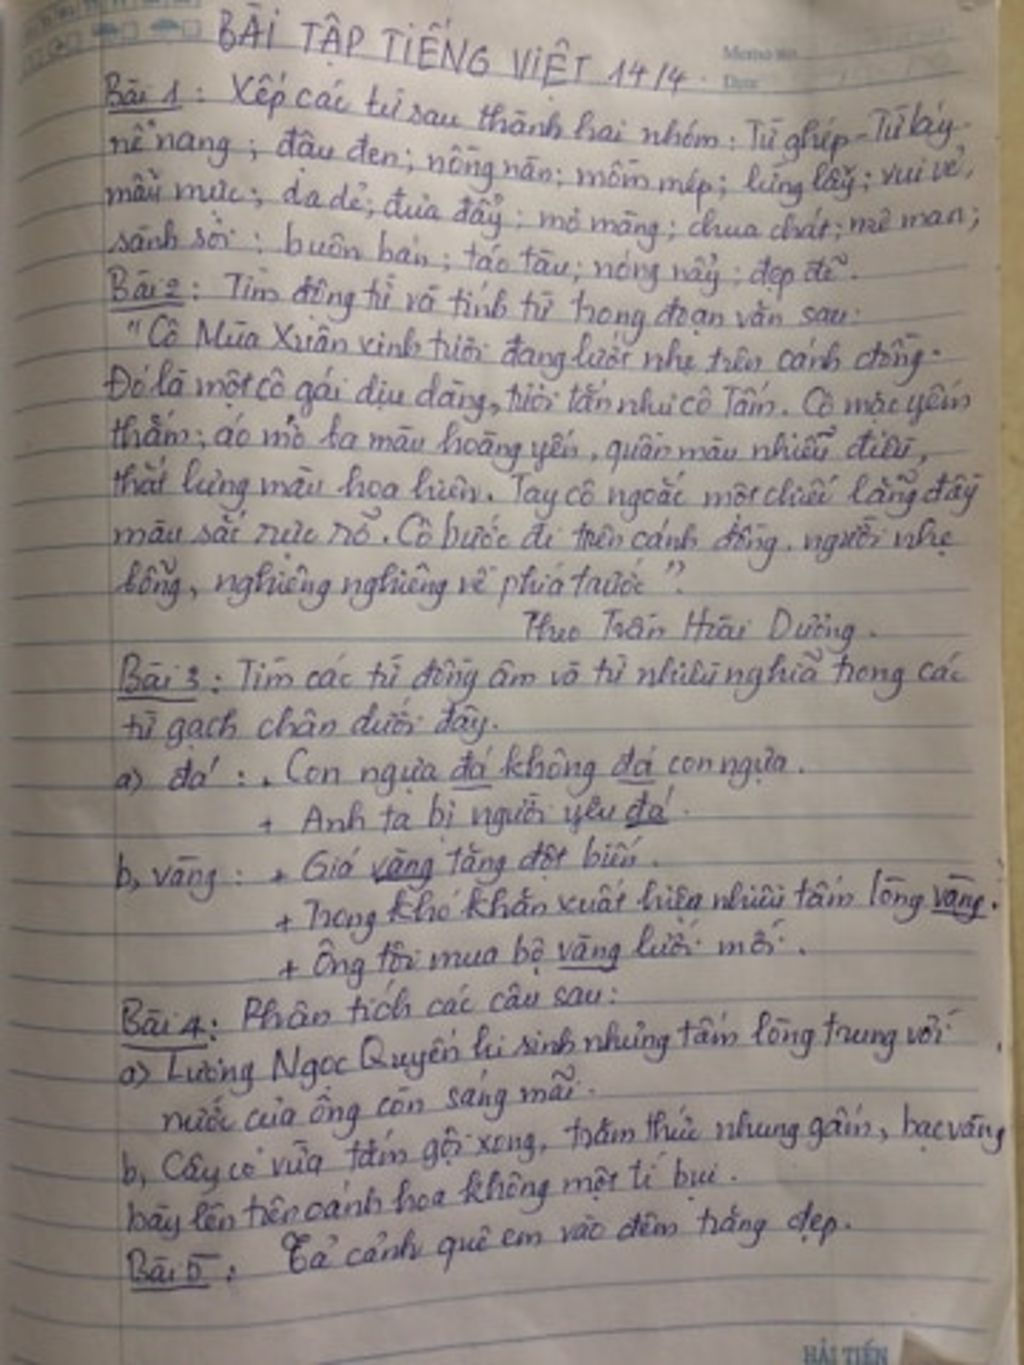 BÀI TẬP TIẾNG VIỆT 14/4.
Memo No.
Date
Bài 1: Xếp các từ sau thành hai nhóm: Từ ghép - Từ láy.
nề nang; đậu đen; nồng nàn; mồm mép; lúng lấy; vui vẻ,
mẫu mực; da dẻ; đưa đẩy; mơ màng; chua chát; mê man;
sành sỏi; buôn bán; táo tàu; nóng nảy; đẹp đẽ.
Bài 2: Tìm động từ và tính từ trong đoạn văn sau:
"Cô Mùa Xuân xinh tươi đang lướt nhẹ trên cánh đồng.
Đó là một cô gái dịu dàng, tươi tắn như cô Tấm. Cô mặc yếm
thắm, áo mớ ba màu hoàng yến, quần màu nhiễu điều,
thắt lưng màu hoa hiên. Tay cô ngoắc một chiếc lẵng đầy
màu sắc rực rỡ. Cô bước đi trên cánh đồng, người nhẹ
bỗng, nghiêng nghiêng về phía trước".
Theo Trần Hoài Dương.
Bài 3: Tìm các từ đồng âm và từ nhiều nghĩa trong các
từ gạch chân dưới đây.
a) đá: + Con ngựa đá không đá con ngựa.
+ Anh ta bị người yêu đá.
b, vàng: + Giá vàng tăng đột biến.
+ Trong khó khăn xuất hiện nhiều tấm lòng vàng.
+ Ông tôi mua bộ vàng lưới mới.
Bài 4: Phân tích các câu sau:
a) Lương Ngọc Quyến hi sinh nhưng tấm lòng trung với
nước của ông còn sáng mãi.
b, Cây cỏ vừa tắm gội xong, trăm thức nhung gấm, bạc vàng
bày lên trên cánh hoa không một tí bụi.
Bài 5: Tả cảnh quê em vào đêm trăng đẹp.
HẢI TIẾN